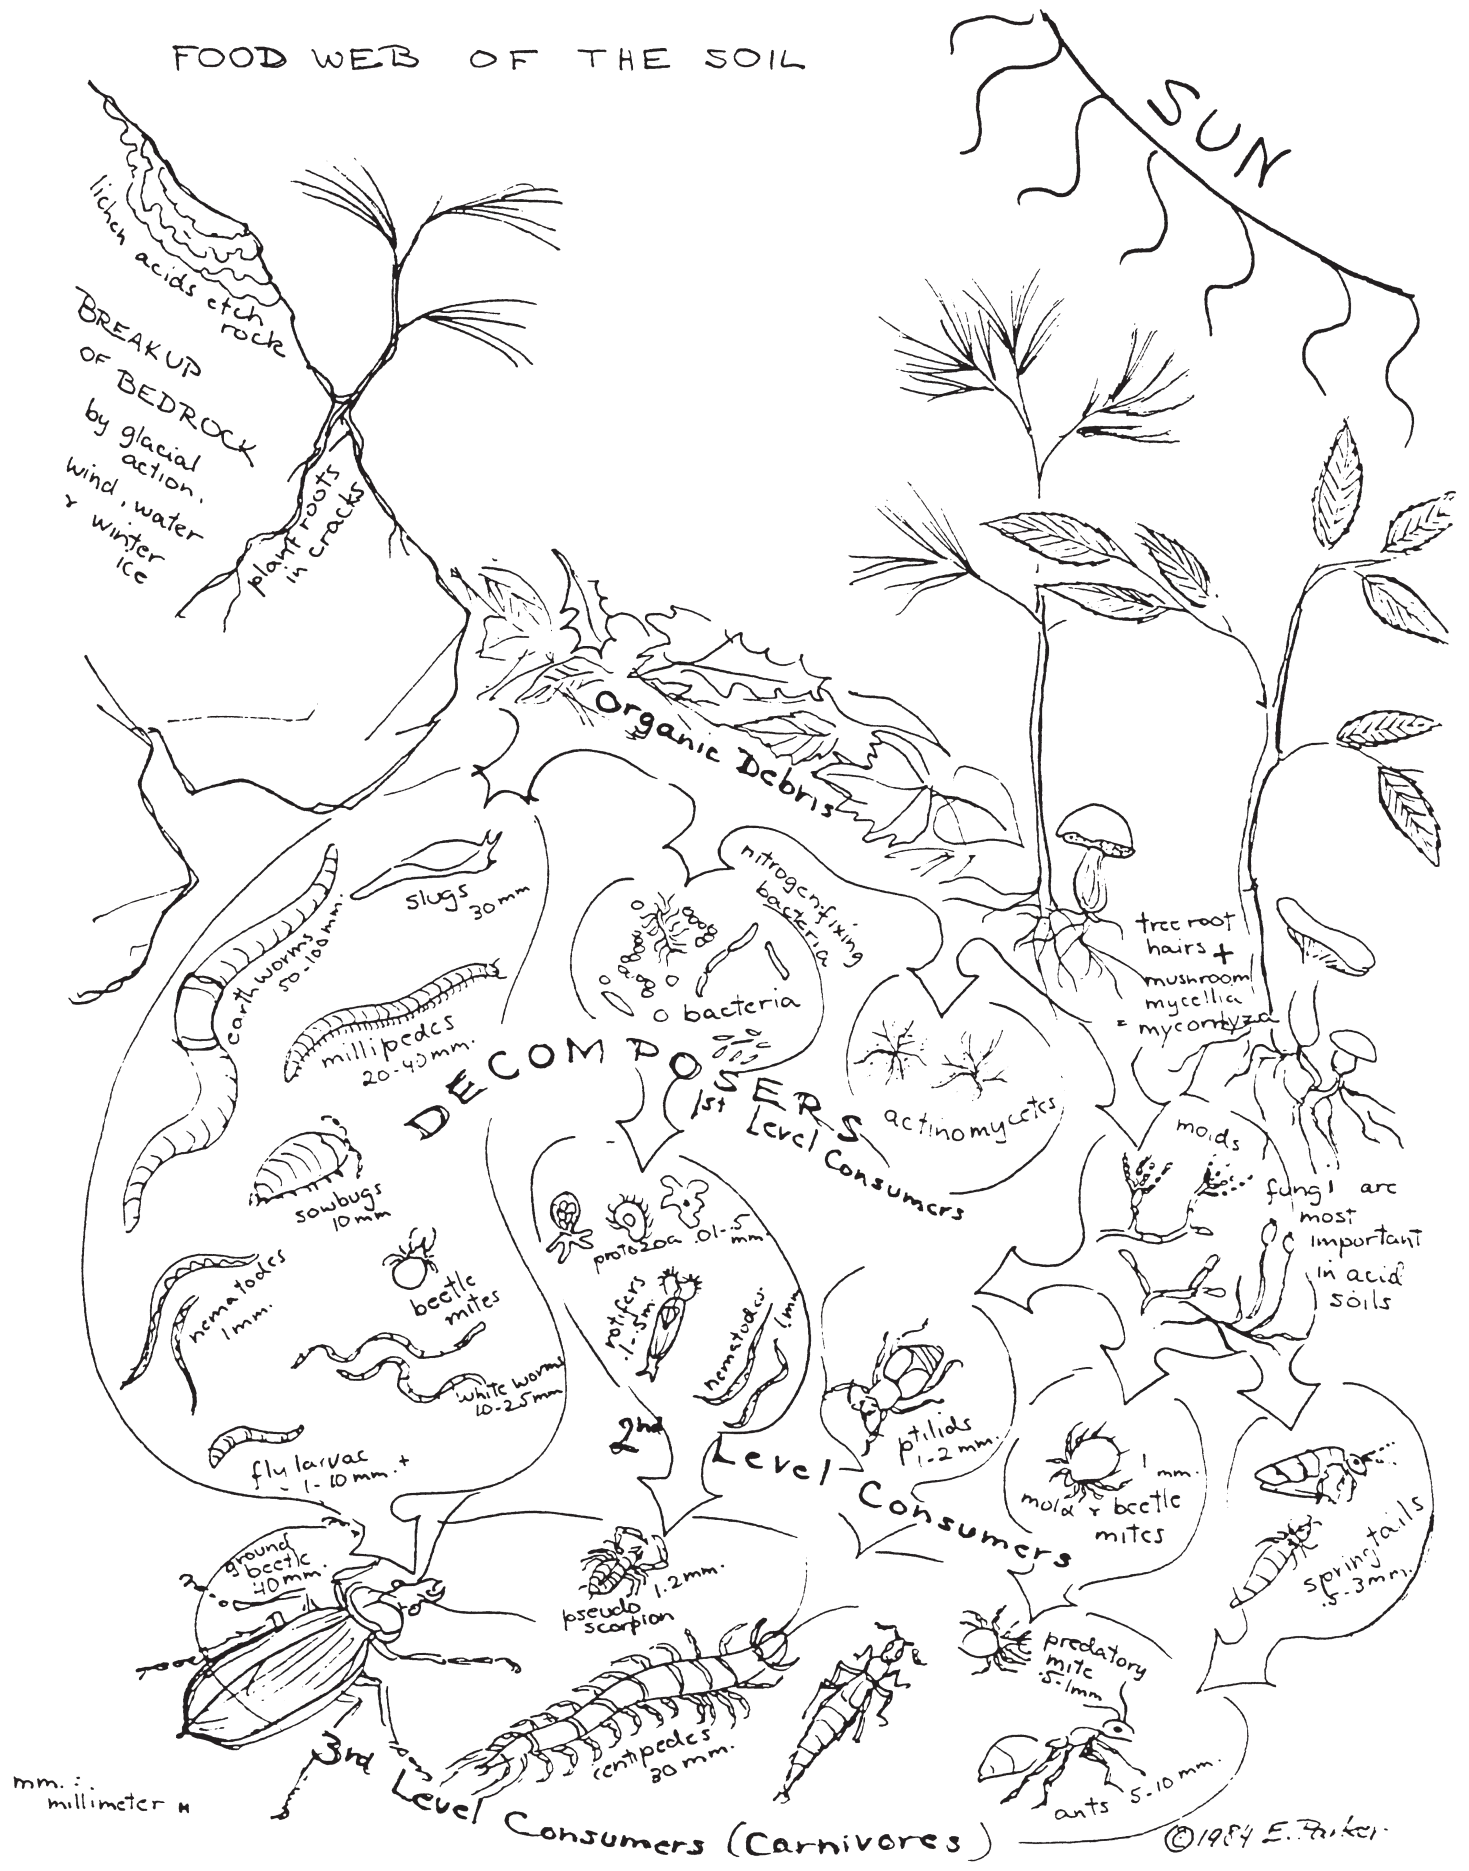 FOOD WEB OF THE SOIL
SUN
lichen acids etch
rock
BREAKUP
OF BEDROCK
by glacial
action,
wind, water
& winter
ice
plant roots
in cracks
Organic Debris
slugs
30 mm
earthworms
50-100 mm.
millipedes
20-40 mm.
nitrogen fixing
bacteria
bacteria
tree root
hairs +
mushroom
mycellia
= mycorryza
DECOMPOSERS
1st
Level
Consumers
actinomycetes
molds
fungi are
most
important
in acid
soils
sowbugs
10 mm
nematodes
1 mm.
beetle
mites
white worms
10-25 mm
fly larvae
1-10 mm. +
protozoa .01-.5
mm.
rotifers
.1-.5 m.
nematodes
1 mm
ptiliids
1-2 mm.
2nd Level Consumers
1 mm.
mold & beetle
mites
springtails
.5-3 mm.
ground
beetle
40 mm.
pseudo
scorpion
1-2 mm.
centipedes
30 mm.
predatory
mite
.5-1 mm
ants 5-10 mm.
3rd Level Consumers (Carnivores)
mm. =
millimeter
©1984 E. Parker.